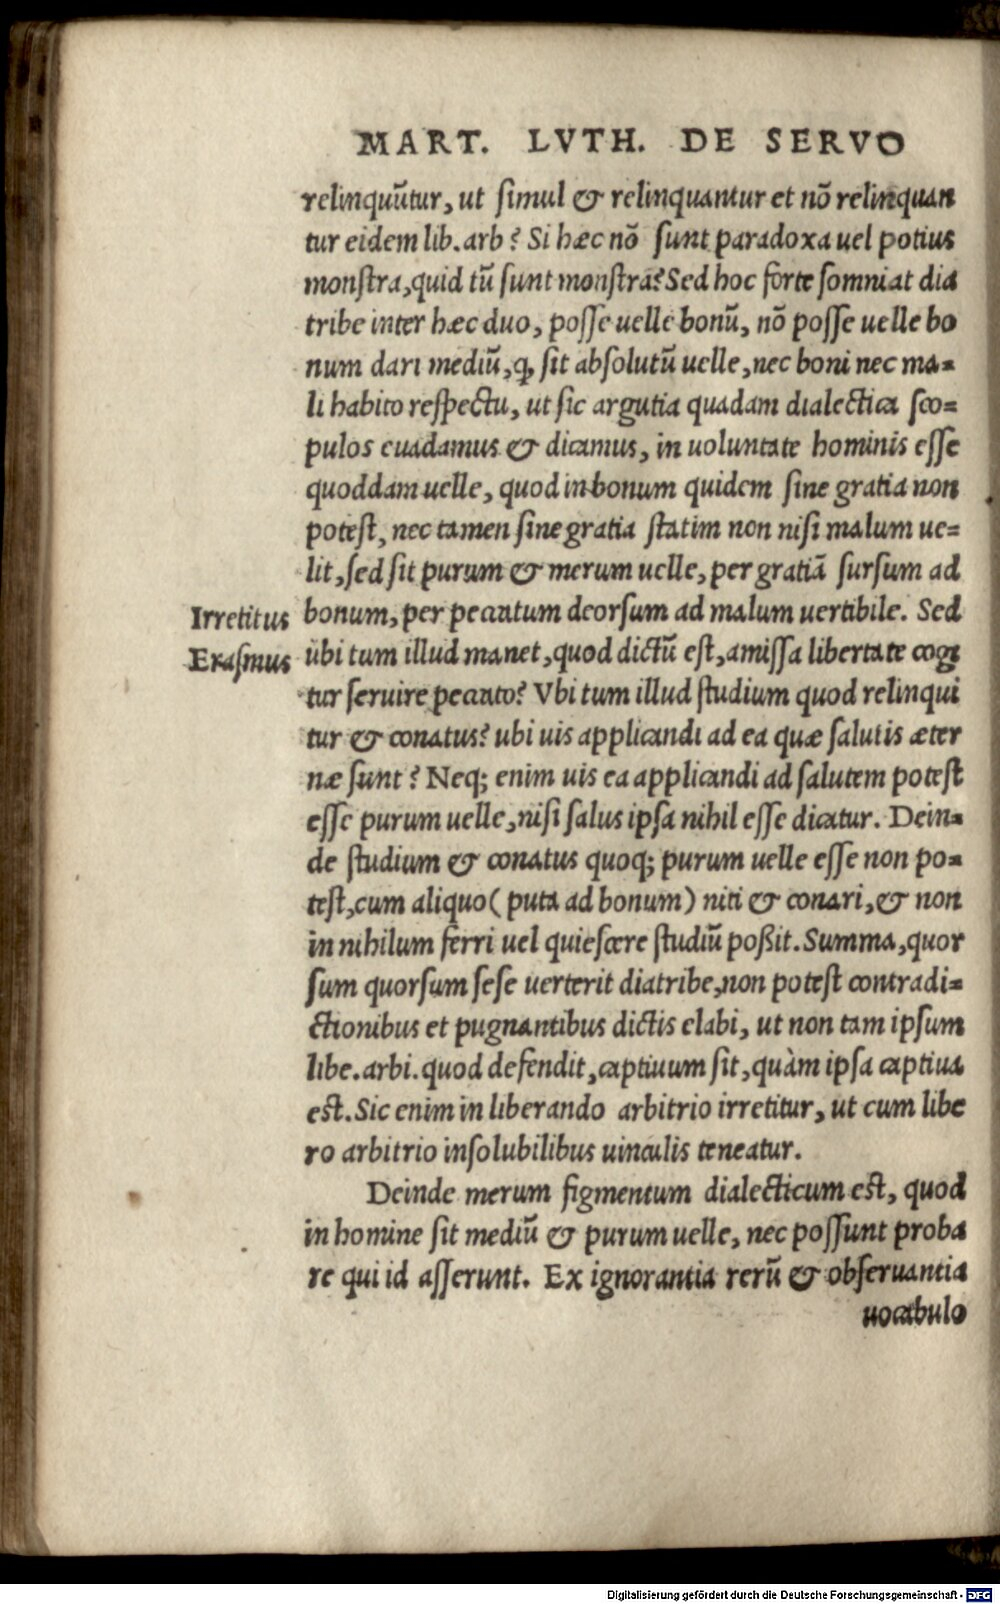 MART. LVTH. DE SERVO
relinquūtur, ut simul & relinquantur et nō relinquan
tur eidem lib. arb? Si hæc nō sunt paradoxa uel potius
monstra, quid tū sunt monstra? Sed hoc forte somniat dia
tribe inter hæc duo, posse uelle bonū, nō posse uelle bo
num dari mediū, ꝙ sit absolutū uelle, nec boni nec ma-
li habito respectu, ut sic argutia quadam dialectica sco-
pulos euadamus & dicamus, in uoluntate hominis esse
quoddam uelle, quod in bonum quidem sine gratia non
potest, nec tamen sine gratia statim non nisi malum ue-
lit, sed sit purum & merum uelle, per gratiā sursum ad
bonum, per peccatum deorsum ad malum uertibile. Sed
Irretitus
Erasmus
ubi tum illud manet, quod dictū est, amissa libertate cogi
tur seruire peccato? Vbi tum illud studium quod relinqui
tur & conatus? ubi uis applicandi ad ea quæ salutis æter
næ sunt? Neq; enim uis ea applicandi ad salutem potest
esse purum uelle, nisi salus ipsa nihil esse dicatur. Dein-
de studium & conatus quoq; purum uelle esse non po-
test, cum aliquo (puta ad bonum) niti & conari, & non
in nihilum ferri uel quiescere studiū poßit. Summa, quor
sum quorsum sese uerterit diatribe, non potest contradi-
ctionibus et pugnantibus dictis elabi, ut non tam ipsum
libe. arbi. quod defendit, captiuum sit, quàm ipsa captiua
est. Sic enim in liberando arbitrio irretitur, ut cum libe
ro arbitrio insolubilibus uinculis teneatur.
Deinde merum figmentum dialecticum est, quod
in homine sit mediū & purum uelle, nec possunt proba
re qui id asserunt. Ex ignorantia rerū & obseruantia
uocabulo
Digitalisierung gefördert durch die Deutsche Forschungsgemeinschaft - DFG